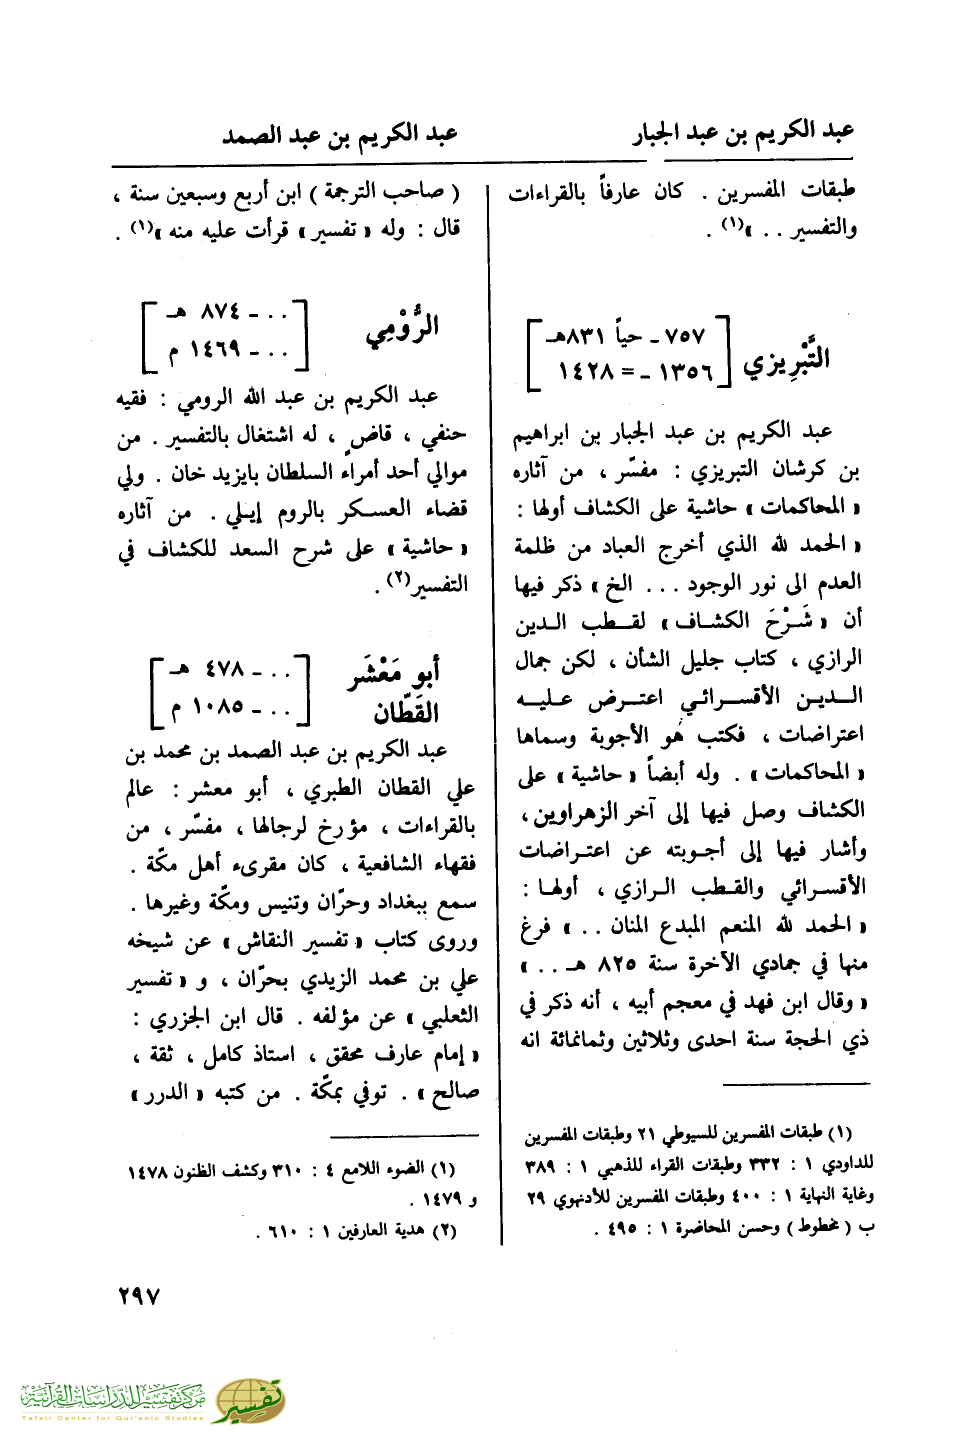 عبد الكريم بن عبد الجبار
عبد الكريم بن عبد الصمد
طبقات المفسرين . كان عارفاً بالقراءات
والتفسير . . »(١) .
التَّبْرِيزي
[ ٧٥٧ ـ حياً ٨٣١هـ
١٣٥٦ ـ = ١٤٢٨ ]
عبد الكريم بن عبد الجبار بن ابراهيم
بن كرشان التبريزي : مفسّر ، من آثاره
« المحاكمات » حاشية على الكشاف أولها :
« الحمد لله الذي أخرج العباد من ظلمة
العدم الى نور الوجود . . . الخ » ذكر فيها
أن « شَرْحَ الكشاف » لقطب الدين
الرازي ، كتاب جليل الشأن ، لكن جمال
الدين الأقسرائي اعترض عليه
اعتراضات ، فكتب هُو الأجوبة وسماها
« المحاكمات » . وله أيضاً « حاشية » على
الكشاف وصل فيها إلى آخر الزهراوين ،
وأشار فيها إلى أجوبته عن اعتراضات
الأقسرائي والقطب الرازي ، أولها :
« الحمد لله المنعم المبدع المنان . . » فرغ
منها في جمادي الآخرة سنة ٨٢٥ هـ . . »
« وقال ابن فهد في معجم أبيه ، أنه ذكر في
ذي الحجة سنة احدى وثلاثين وثمانمائة انه
(١) طبقات المفسرين للسيوطي ٢١ وطبقات المفسرين
للداودي ١ : ٣٣٢ وطبقات القراء للذهبي ١ : ٣٨٩
وغاية النهاية ١ : ٤٠٠ وطبقات المفسرين للأدنهوي ٢٩
ب ( مخطوط ) وحسن المحاضرة ١ : ٤٩٥ .
( صاحب الترجمة ) ابن أربع وسبعين سنة ،
قال : وله « تفسير » قرأت عليه منه »(١) .
الرُّوْمِي
[ . . ـ ٨٧٤ هـ
. . ـ ١٤٦٩ م ]
عبد الكريم بن عبد الله الرومي : فقيه
حنفي ، قاضٍ ، له اشتغال بالتفسير . من
موالي أحد أمراء السلطان بايزيد خان . ولي
قضاء العسكر بالروم إيلي . من آثاره
« حاشية » على شرح السعد للكشاف في
التفسير(٢) .
أبو مَعْشَر
القَطّان
[ . . ـ ٤٧٨ هـ
. . ـ ١٠٨٥ م ]
عبد الكريم بن عبد الصمد بن محمد بن
علي القطان الطبري ، أبو معشر : عالم
بالقراءات ، مؤرخ لرجالها ، مفسّر ، من
فقهاء الشافعية ، كان مقرىء أهل مكّة .
سمع ببغداد وحرّان وتنيس ومكّة وغيرها .
وروى كتاب « تفسير النقاش » عن شيخه
علي بن محمد الزيدي بحرّان ، و « تفسير
الثعلبي » عن مؤلفه . قال ابن الجزري :
« إمام عارف محقق ، استاذ كامل ، ثقة ،
صالح » . توفي بمكّة . من كتبه « الدرر »
(١) الضوء اللامع ٤ : ٣١٠ وكشف الظنون ١٤٧٨
و ١٤٧٩ .
(٢) هدية العارفين ١ : ٦١٠ .
٢٩٧
مركز تفسير للدراسات القرآنية
Tafsir Center for Qur'anic Studies
تفسير